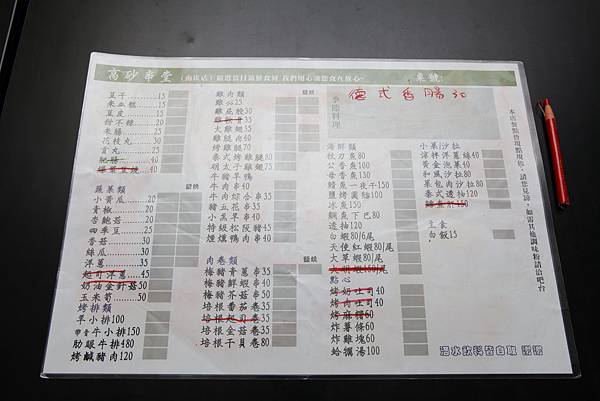 高砂串堂
(南崁店)嚴選當日新鮮食材 我們用心讓您食在放心~
桌號:
德式香腸30
季節料理
豆干 15
米血糕 15
豆皮 15
甜不辣 20
米腸 25
花枝丸 30
貢丸 25
肥腸 40
40
蔬菜類
小黃瓜 20
青椒 20
杏鮑菇 20
四季豆 25
香菇 30
絲瓜 30
洋蔥 35
起司洋蔥 45
奶油金針菇 50
玉米筍 50
烤排類
羊小排100
帶骨牛小排150
肋眼牛排480
烤鹹豬肉120
雞肉類
鹽燒
雞心25
雞屁股30
雞軟骨35
大雞翅35
雞腿肉40
烤雞腿70
泰式烤雞腿80
明太子雞翅
牛豬羊鴨
牛肉串
牛肉綜合串35
豬五花串35
小羔羊串40
特級松阪豬45
煙燻鴨肉串40
肉卷類
鹽燒
梅豬青蔥串35
梅豬鮮蝦串40
梅豬芥菇串50
培根番茄卷35
培根起司卷35
培根金菇卷35
培根干貝卷80
海鮮類
秋刀魚80
公香魚100
母香魚130
鯖魚一夜干150
鹽烤圓鱈100
冰魚150
鯛魚下巴80
透抽120
白蝦80/6尾
天使紅蝦80/尾
大草蝦80/尾
大明蝦160/尾
點心
烤奶吐司40
烤肉吐司40
烤麻糬60
炸薯條60
炸雞塊60
蛤蠣湯100
小菜/沙拉
涼拌洋蔥絲40
黃金泡菜40
和風沙拉80
菓包肉沙拉80
泰式透抽120
160
主食
白飯15
本店餐點皆現點現烤,請您見諒,如需其他調味粉請洽吧台
湯水飲料皆自取 謝謝